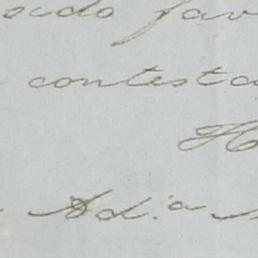 cido fav
contesta
H
Ad.ª